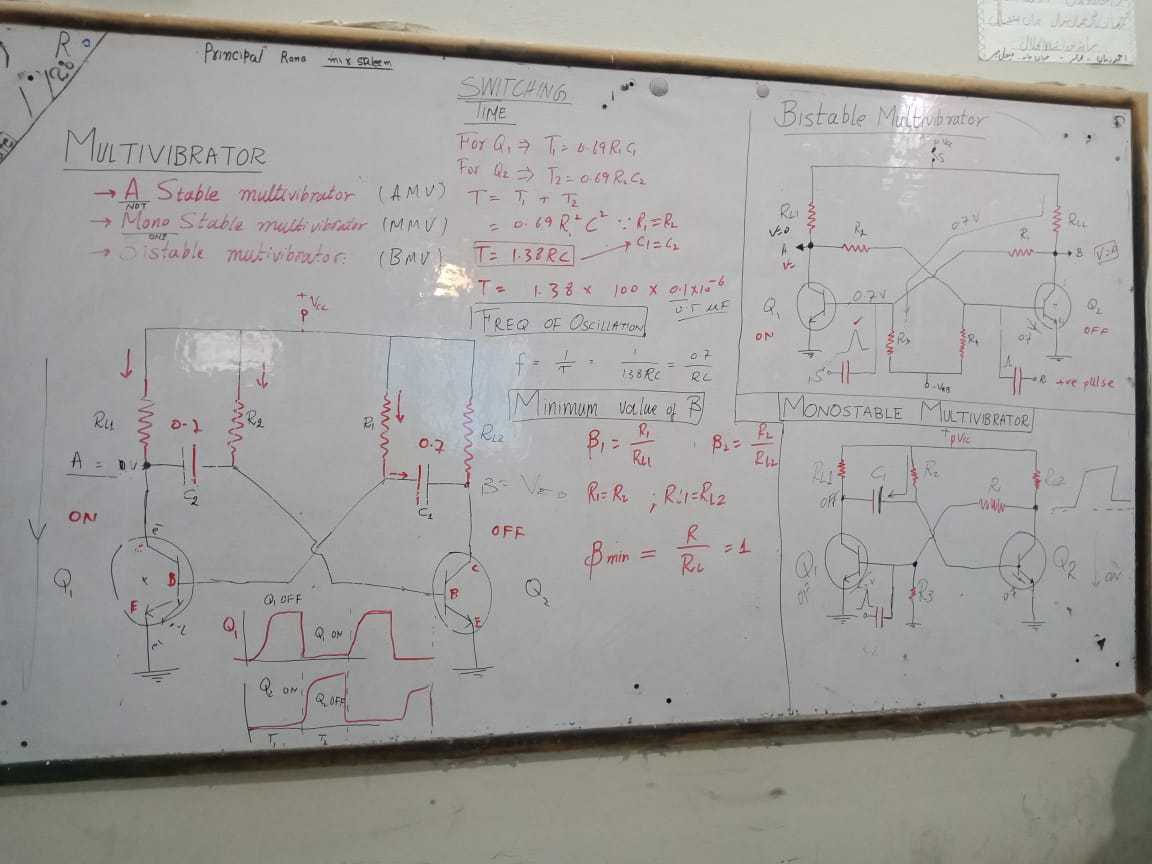 R
Principal Rana
MULTIVIBRATOR
→ A Stable multivibrator (AMV)
NOT
→ Mono Stable multivibrator (MMV)
ONE
→ Bistable mutivibrator: (BMV)
SWITCHING
TIME
For Q₁ ⇒ T₁ = 0.69 R₁C₁
For Q₂ ⇒ T₂ = 0.69 R₂C₂
T = T₁ + T₂
= 0.69 R² C² ∵ R₁ = R₂
C₁ = C₂
T = 1.38 RC
T = 1.38 × 100 × 0.1×10⁻⁶
FREQ OF OSCILLATION
f = 1/T = 1/1.38RC = 0.7/RC
Minimum value of β
β₁ = R₁/RL1 β₂ = R₂/RL2
R₁ = R₂ ; RL1 = RL2
βmin = R/RL = 1
+Vcc
RL1 0.7 R₂ R₁ 0.7 RL2
A = 0V
C₂ C₁
ON OFF
Q₁ B E
C B E Q₂
Q₁ Q₁ OFF Q₁ ON
Q₂ ON Q₂ OFF
T₁ T₂
Bistable Multivibrator
RL1 R₂ 0.7V R₁ RL2
A B
Q₁ 0.7V Q₂
ON OFF
-VBB
+ve pulse
MONOSTABLE MULTIVIBRATOR
RL1 C₁ R₂ R₁ RL2
OFF
Q₁ R3 Q₂
ON